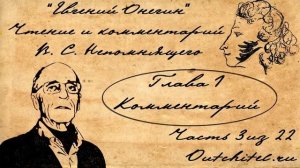 "Евгений Онегин"
Чтение и комментарий
В. С. Непомнящего
Глава 1
Комментарий
Часть 3 из 22
Outchitel.ru